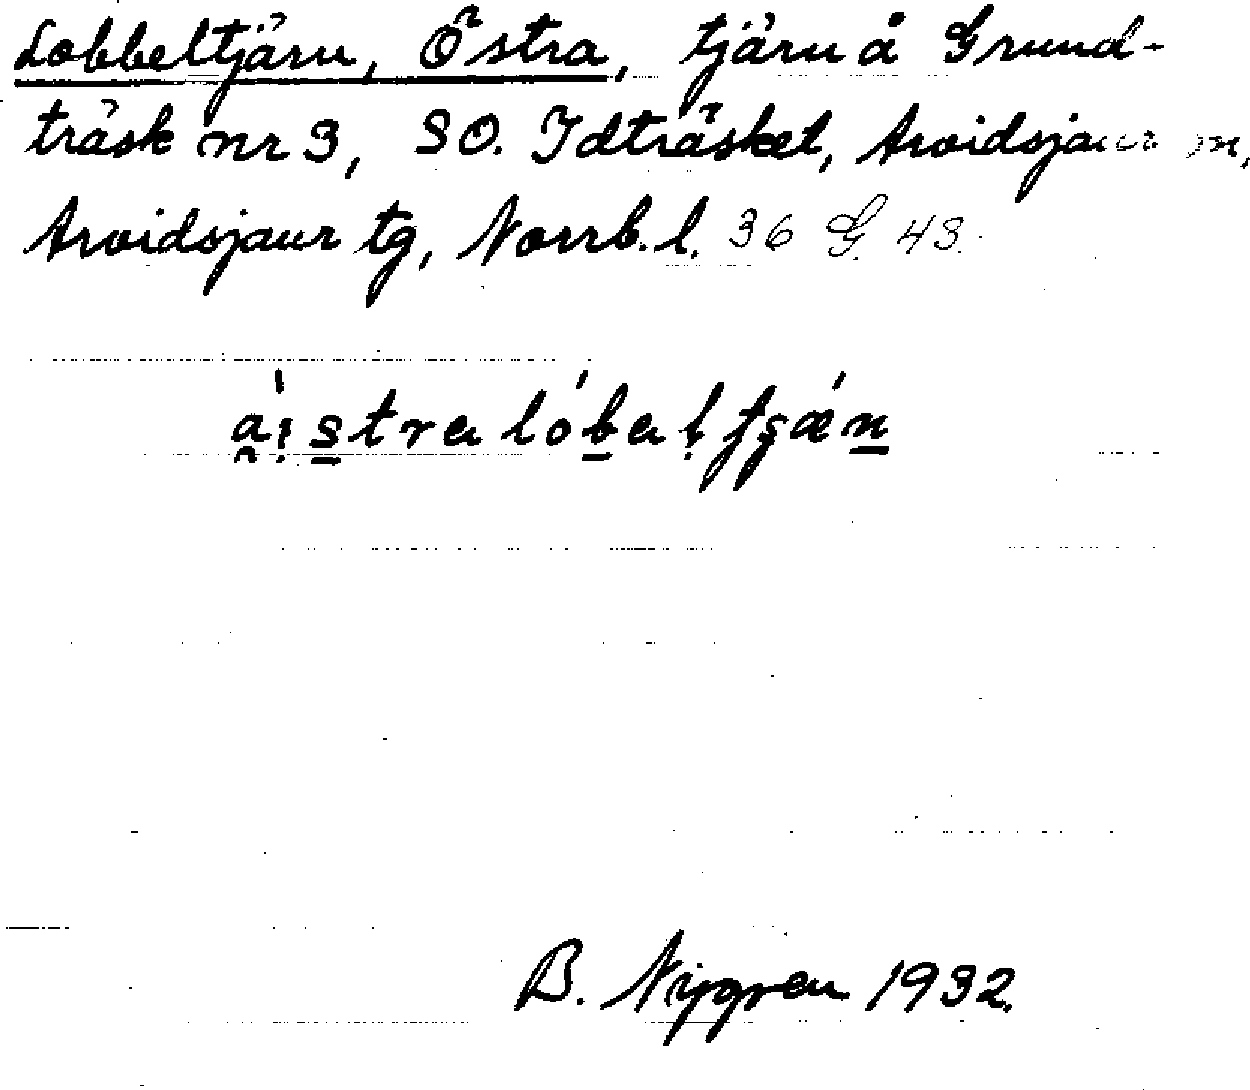 Lobbeltjärn, Östra, tjärn å Grund-
träsk nr 3, SO. Idträsket, Arvidsjaur sn,
Arvidsjaur tg, Norrb. l. 36 G. 43.
B. Nygren 1932.